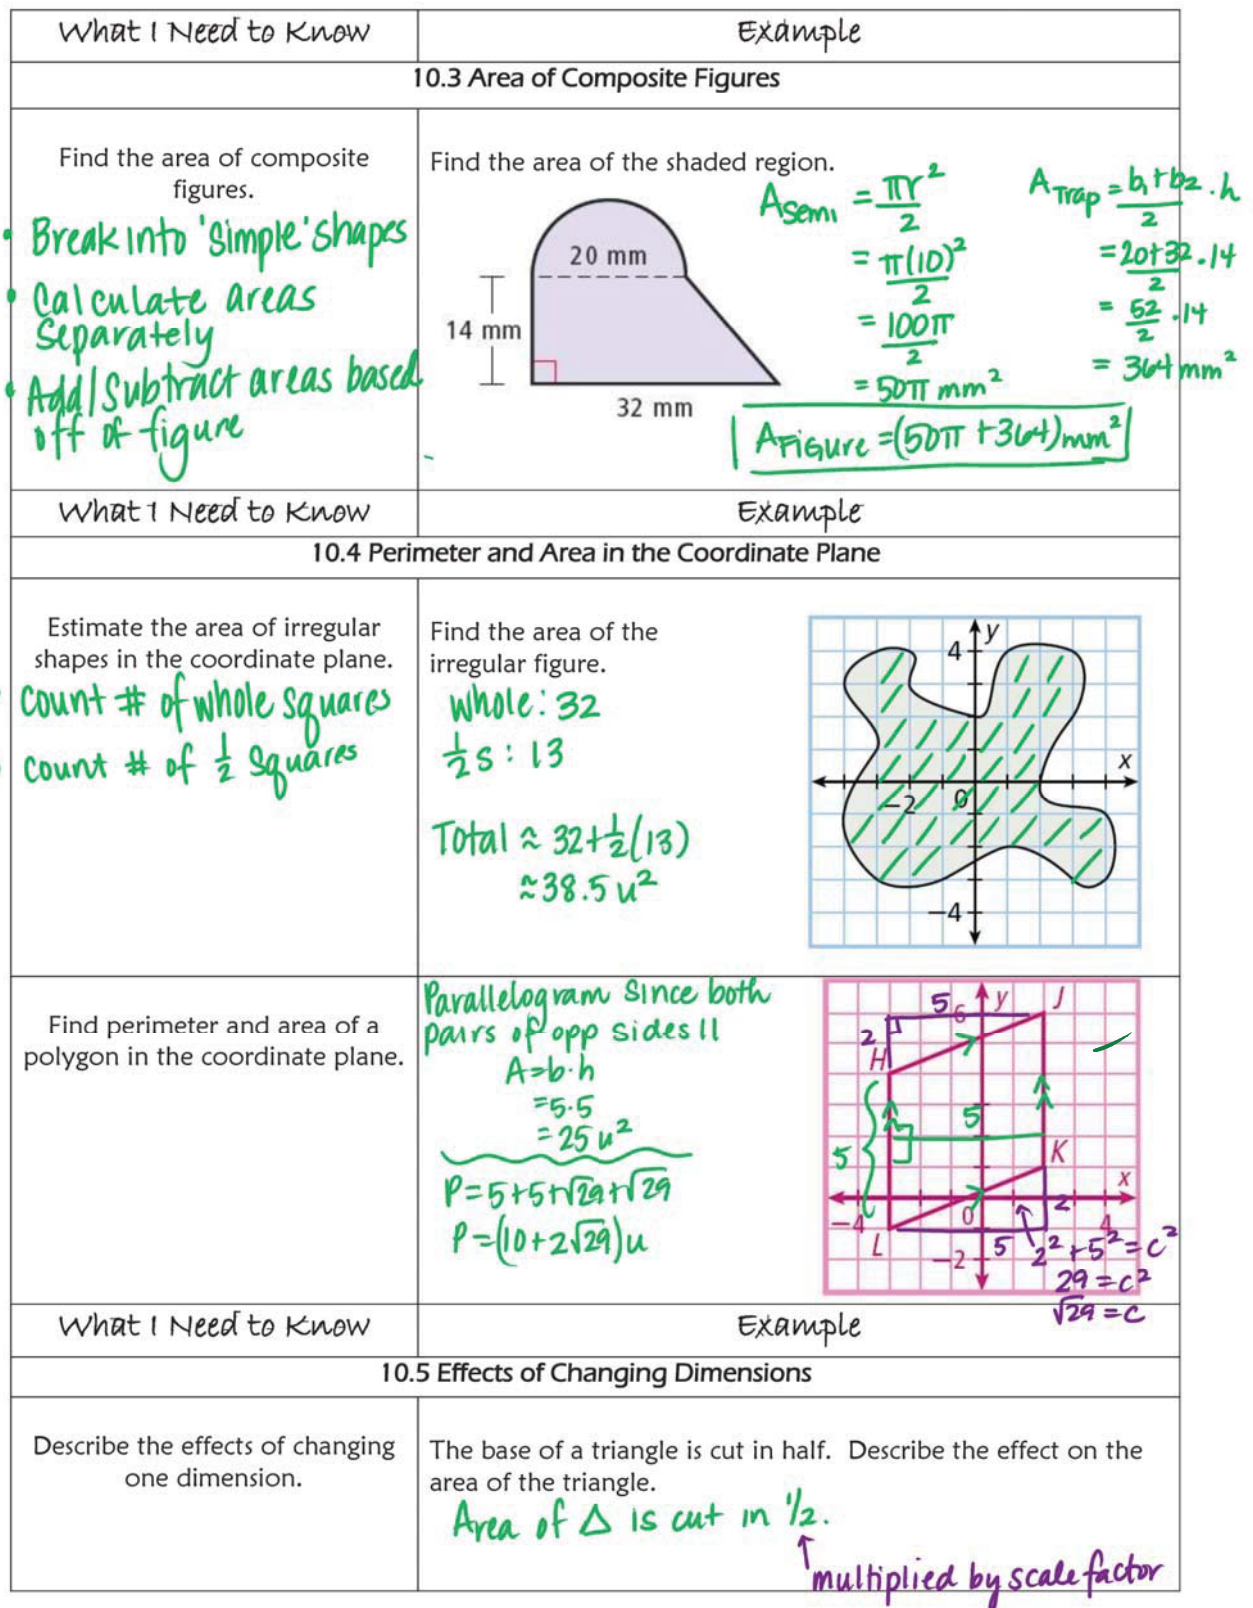 What I Need to Know
Example
10.3 Area of Composite Figures
Find the area of composite
figures.
• Break into 'simple' shapes
• Calculate areas
separately
• Add/Subtract areas based
off of figure
Find the area of the shaded region.
20 mm
14 mm
32 mm
A semi = πr²/2
= π(10)²/2
= 100π/2
= 50π mm²
A Trap = b₁+b₂/2 · h
= 20+32/2 · 14
= 52/2 · 14
= 364 mm²
A Figure = (50π + 364) mm²
What I Need to Know
Example
10.4 Perimeter and Area in the Coordinate Plane
Estimate the area of irregular
shapes in the coordinate plane.
count # of whole squares
count # of ½ squares
Find the area of the
irregular figure.
whole: 32
½s: 13
Total ≈ 32+½(13)
≈ 38.5 u²
4
y
x
−2
0
−4
Find perimeter and area of a
polygon in the coordinate plane.
Parallelogram since both
pairs of opp sides ||
A=b·h
=5·5
=25 u²
P=5+5+√29+√29
P=(10+2√29)u
5
6
y
J
2
H
5
5
K
x
−4
0
2
4
L
−2
5
2²+5²=c²
29=c²
√29=c
What I Need to Know
Example
10.5 Effects of Changing Dimensions
Describe the effects of changing
one dimension.
The base of a triangle is cut in half. Describe the effect on the
area of the triangle.
Area of Δ is cut in ½.
↑
multiplied by scale factor